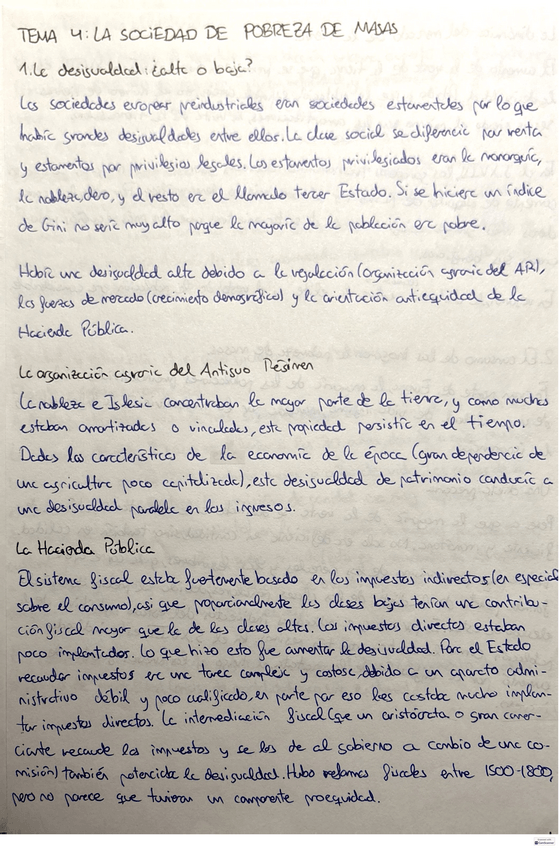 TEMA 4: LA SOCIEDAD DE POBREZA DE MASAS
1. La desigualdad: ¿alta o baja?
Las sociedades europeas preindustriales eran sociedades estamentales por lo que
había grandes desigualdades entre ellas. La clase social se diferencia por renta
y estamentos por privilegios legales. Los estamentos privilegiados eran la monarquía,
la nobleza, clero, y el resto era el llamado tercer Estado. Si se hiciera un índice
de Gini no sería muy alto porque la mayoría de la población era pobre.
Había una desigualdad alta debido a la regulación (organización agraria del AR),
las fuerzas de mercado (crecimiento demográfico) y la orientación antiequidad de la
Hacienda Pública.
La organización agraria del Antiguo Régimen
La nobleza e Iglesia concentraban la mayor parte de la tierra, y como muchas
estaban amortizadas o vinculadas, esta propiedad persistía en el tiempo.
Dadas las características de la economía de la época (gran dependencia de
una agricultura poco capitalizada), esta desigualdad de patrimonio conducía a
una desigualdad paralela en los ingresos.
La Hacienda Pública
El sistema fiscal estaba fuertemente basado en los impuestos indirectos (en especial
sobre el consumo), así que proporcionalmente las clases bajas tenían una contribu-
ción fiscal mayor que la de las clases altas. Los impuestos directos estaban
poco implantados. Lo que hizo esto fue aumentar la desigualdad. Para el Estado
recaudar impuestos era una tarea compleja y costosa, debido a un aparato admi-
nistrativo débil y poco cualificado, en parte por eso les costaba mucho implan-
tar impuestos directos. La intermediación fiscal (que un aristócrata o gran comer-
ciante recaude los impuestos y se los de al gobierno a cambio de una co-
misión) también potenciaba la desigualdad. Hubo reformas fiscales entre 1500-1800,
pero no parece que tuvieran un componente proequidad.